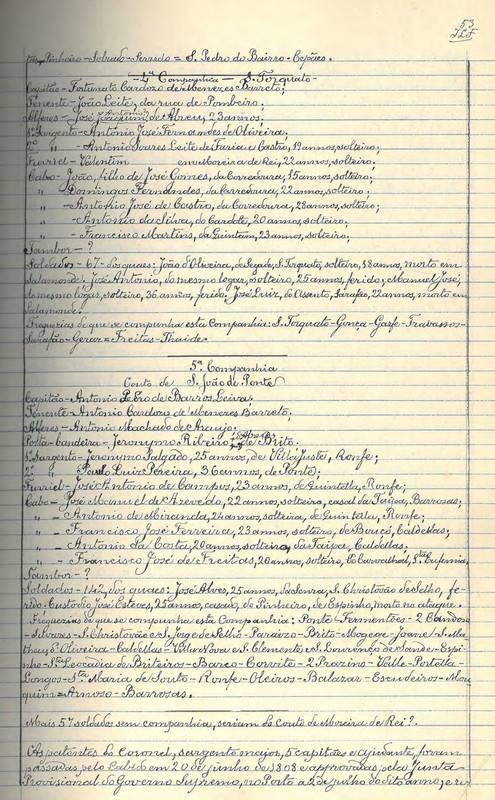 53
Pinheiro-Sobrado-Serzedo = S. Pedro do Bairro-Cepães.
4ª Companhia - S. Torquato-
Capitão-Fortunato Cardozo de Menezes Barreto;
Tenente-João Leite, da rua de Pombeiro;
Alferes-José Joaquim Antonio de Abreu, 23 annos;
1º Sargento-Antonio José Fernandes de Oliveira;
2º " -Antonio Soares Leite de Faria e Castro, 19 annos, solteiro;
Furriel-Valentim de Rei, 22 annos, solteiro;
Cabo-João, filho de José Gomes, da Corredoura, 15 annos, solteiro;
" -Domingos Fernandes, da Corredoura, 22 annos, solteiro;
" -Antonio José de Castro, da Corredoura, 28 annos, solteiro;
" -Antonio da Silva, do Cardote, 20 annos, solteiro;
" -Francisco Martins, da Quintam, 23 annos, solteiro;
Tambor-?
Soldados-67-dos quaes: João d'Oliveira, de Segade, S. Torquato, solteiro, 18 annos, morto em
Salamonde; José Antonio, do mesmo logar, solteiro, 25 annos, ferido; Manuel José,
do mesmo logar, solteiro, 36 annos, ferido; José Luiz, do Assento, Sarafão, 22 annos, morto em
Salamonde.
Freguezias de que se compunha esta Companhia: S. Torquato-Gonça-Garfe-Travassos-
Sarafão-Geraz=Freitas-Thaide.
5ª Companhia
Couto de S. João de Ponte
Capitão-Antonio Peixo de Barros Leiva;
Tenente-Antonio Cardozo de Menezes Barreto;
Alferes-Antonio Machado de Araujo;
Porta-bandeira-Jeronymo Ribeiro de Brito.
1º Sargento-Jeronymo Salgado, 25 annos, de Villajuste, Ronfe;
2º " Paulo Luiz Pereira, 36 annos, de Ponte;
Furriel-José Antonio de Campos, 23 annos, de Quintella, Ronfe;
Cabo-José Manuel de Azevedo, 22 annos, solteiro, casal da Taipa, Barrosas;
" -Antonio de Miranda, 24 annos, solteiro, de Quintela, Ronfe;
" -Francisco José Ferreira, 23 annos, solteiro, de Buraçô, Caldellas;
" -Antonio da Costa, 20 annos, solteiro, da Taipa, Caldellas.
" -Francisco José de Freitas, 20 annos, solteiro, do Carvalhal, Stª Eufemia.
Tambor-?
Soldados-142, dos quaes: José Alves, 25 annos, da Serra, S. Christovão de Selho, fe-
rido. Custodio José Esteves, 25 annos, casado, de Pinheiro, de Espinho, morto no ataque.
Freguezias de que se compunha esta Companhia: Ponte-Fermentões-2 Candoso
-Silvares-S. Christovão e S. Jorge de Selho-Paraizo-Brito-Mogege-Joane-S. Ma-
theus d'Oliveira-Caldellas-Villa Nova e S. Clemente e S. Lourenço de Sande-Espi-
nho-Stª Leocadia de Briteiros-Barco-Corvite-2 Prazins-Valle-Portella-
Longos-Stª Maria de Souto-Ronfe-Oleiros-Balazar-Escudeiros-Mou
quim=Arnoso-Barrosas.
Mais 57 soldados sem companhia, seriam do Couto de Moreira de Rei?.
As patentes do Coronel, sargento mayor, 5 capitães e ajudante, foram
passadas pelo Cabido em 20 de junho de 1808 e approvadas, pela Junta
Provisional do Governo Supremo, no Porto a 2 de julho do dito anno, e re